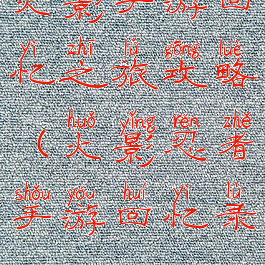 火影手游回
yì zhī lǚ gōng lüè
忆之旅攻略
huǒ yǐng rěn zhě
（火影忍者
shǒu yóu huí yì lù
手游回忆录